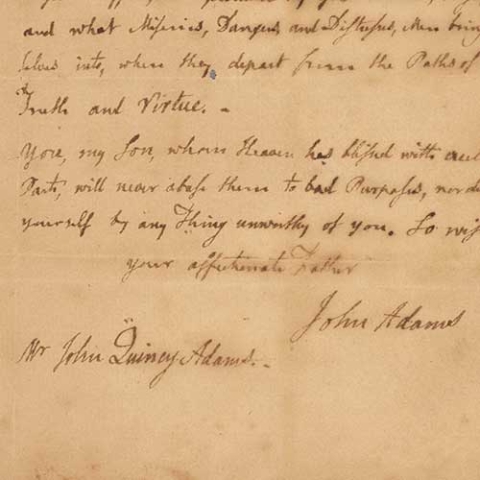 and what Miseries, Dangers and Distresses, Men bring
selves into, when they depart from the Paths of
Truth and Virtue. -
You, my Son, whom Heaven has blessed with excel
Parts, will never abuse them to bad Purposes, nor d
yourself by any Thing unworthy of you. So wis
your affectionate Father
John Adams
Mr John Quincy Adams. -